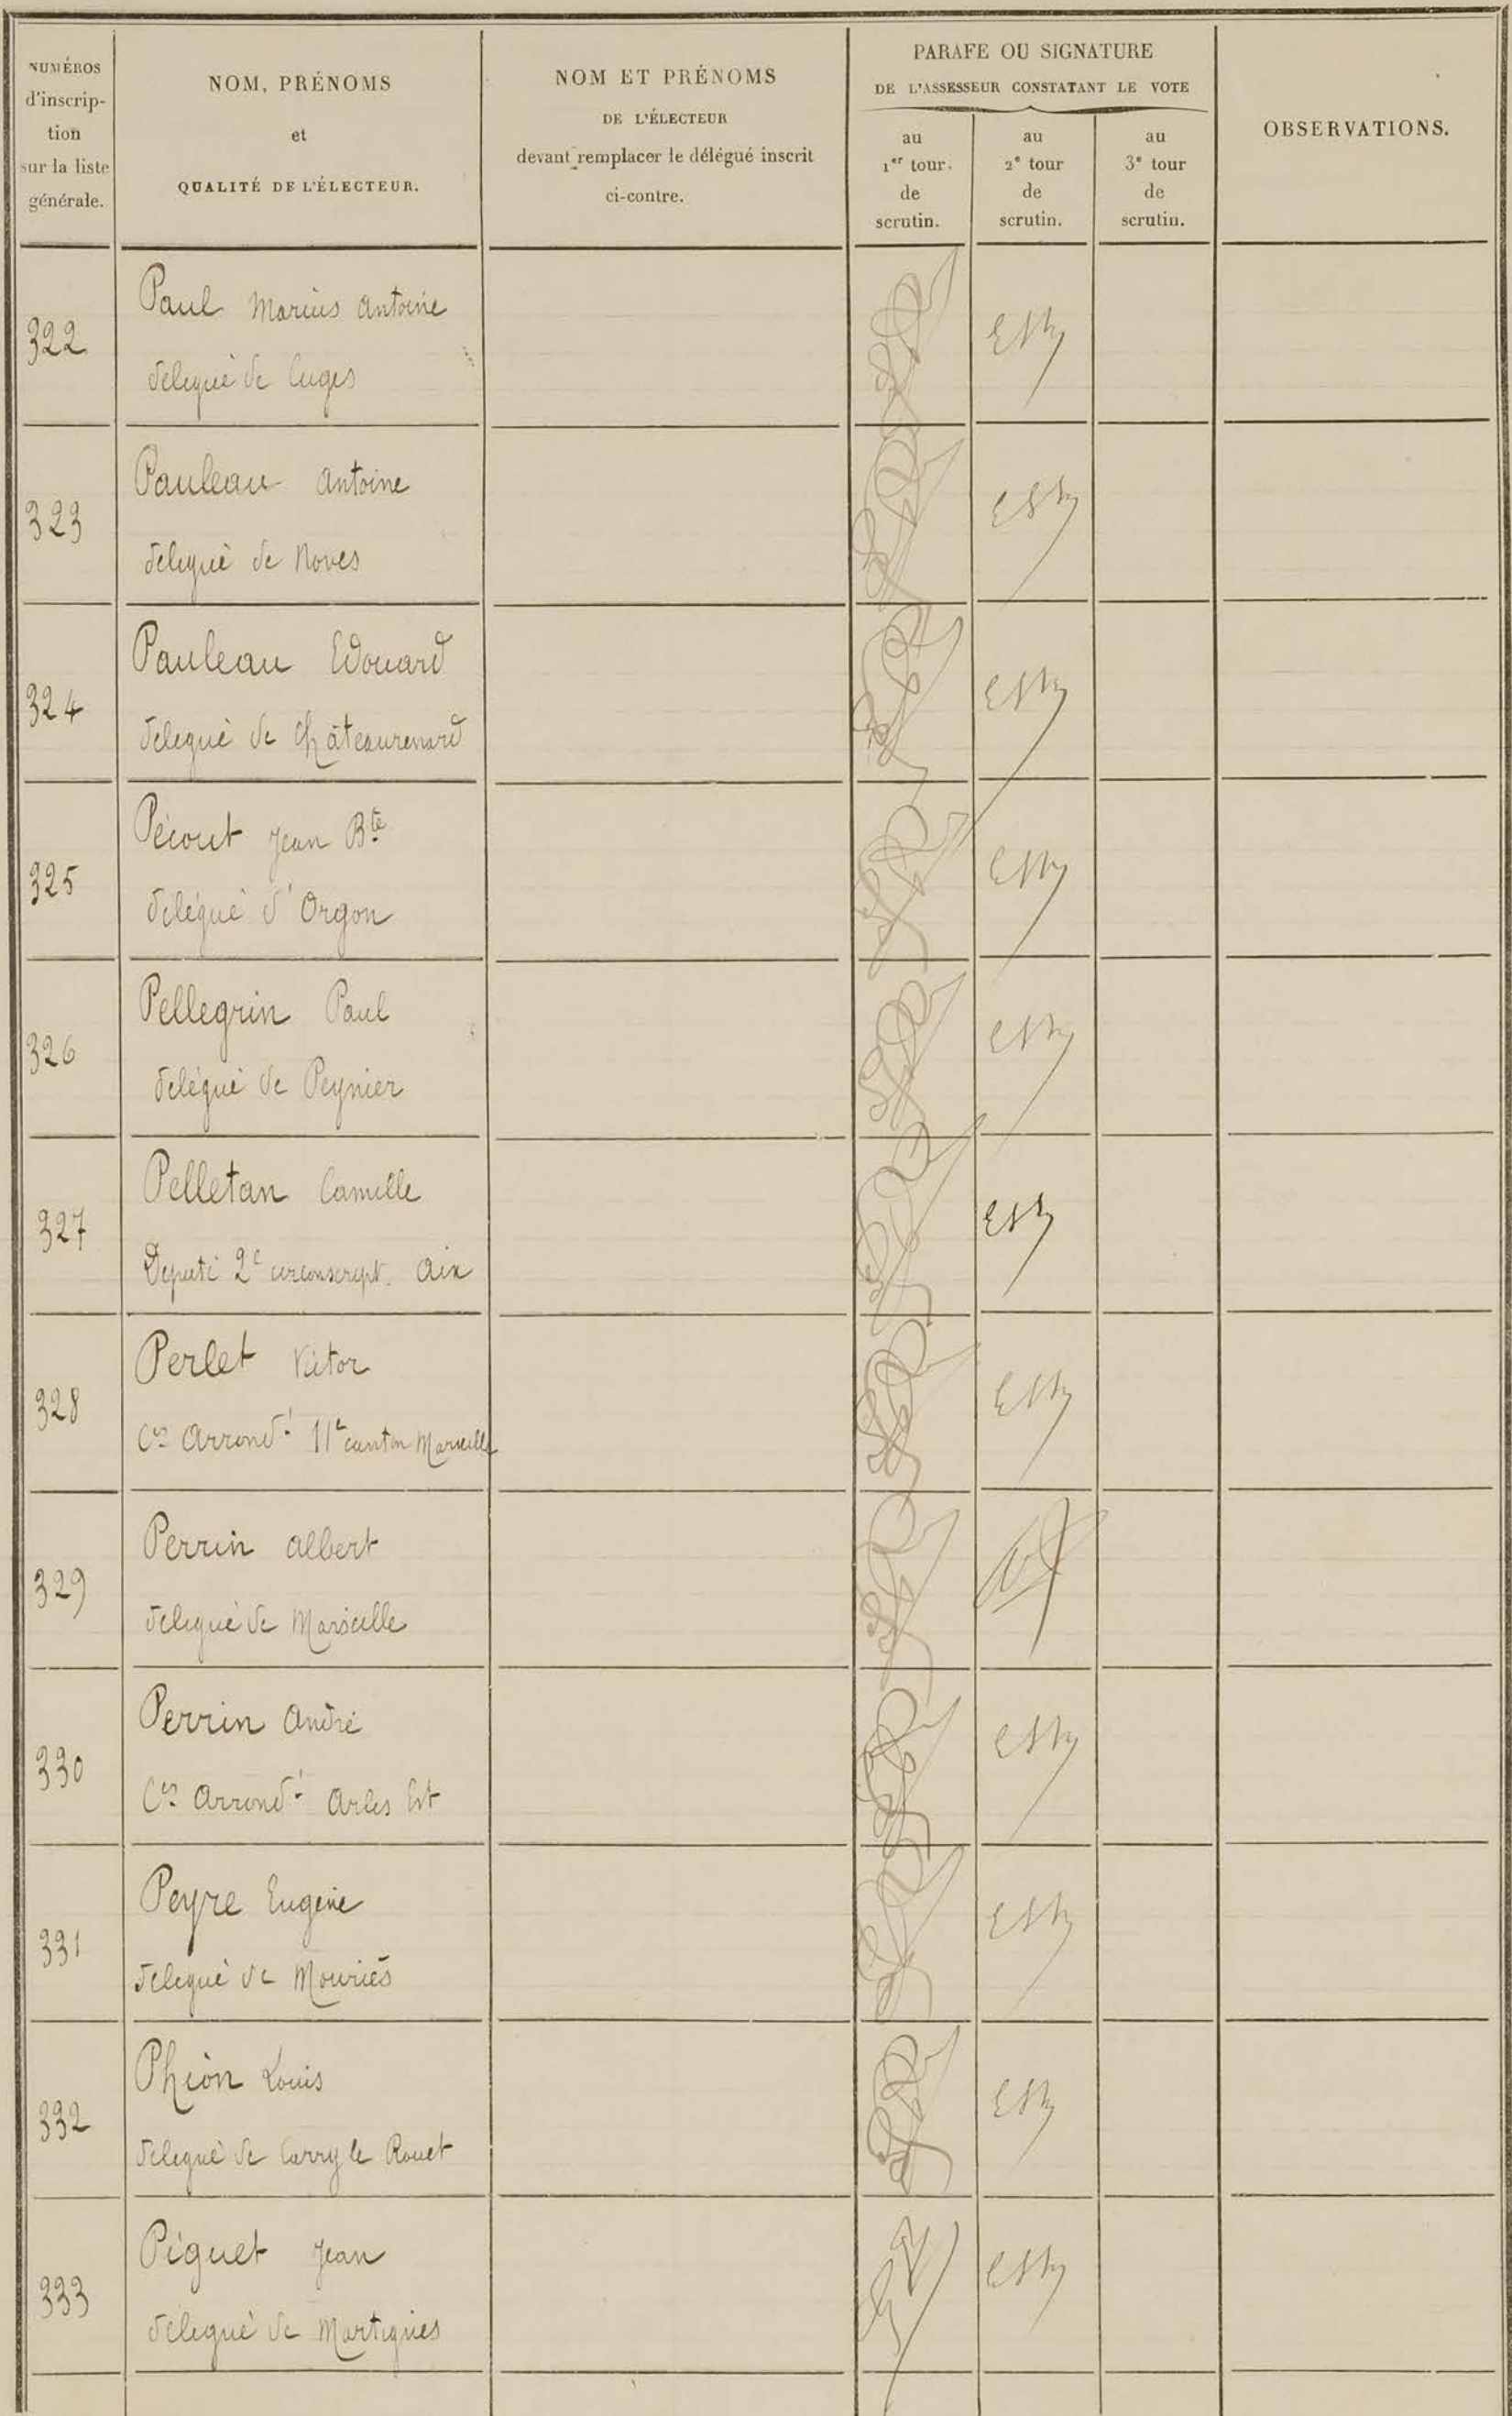 NUMÉROS
d'inscrip-
tion
sur la liste
générale.
NOM, PRÉNOMS
et
QUALITÉ DE L'ÉLECTEUR.
NOM ET PRÉNOMS
DE L'ÉLECTEUR
devant remplacer le délégué inscrit
ci-contre.
PARAFE OU SIGNATURE
DE L'ASSESSEUR CONSTATANT LE VOTE
au
1er tour.
de
scrutin.
au
2e tour
de
scrutin.
au
3e tour
de
scrutin.
OBSERVATIONS.
322
Paul Marius Antoine
délégué de Cuges
323
Pauleau Antoine
délégué de Noves
324
Pauleau Edouard
délégué de Châteaurenard
325
Pécout Jean Bte
délégué d'Orgon
326
Pellegrin Paul
délégué de Peynier
327
Pelletan Camille
Député 2e circonscript. Aix
328
Perlet Victor
Cer Arrondt 11e canton Marseille
329
Perrin Albert
délégué de Marseille
330
Perrin André
Cer Arrondt Arles Est
331
Peyre Eugène
délégué de Mouriès
332
Phion Louis
délégué de Carry le Rouet
333
Piguet Jean
délégué de Martigues